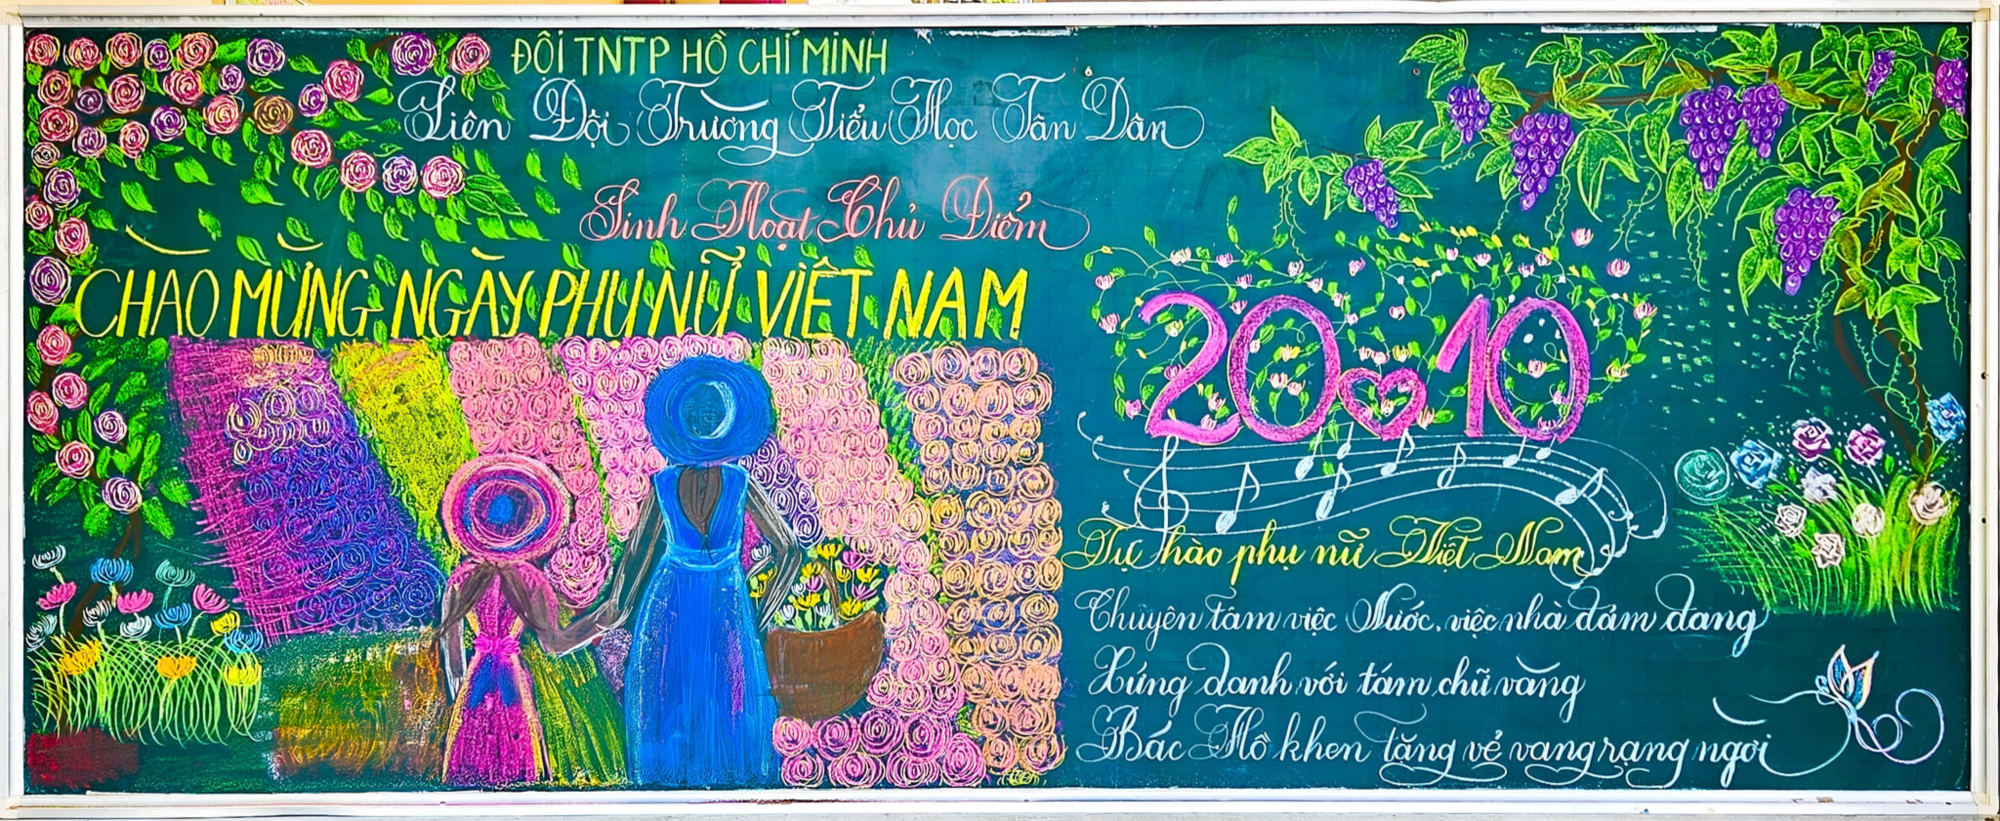 ĐỘI TNTP HỒ CHÍ MINH
Liên Đội Trường Tiểu Học Tân Dân
Sinh Hoạt Chủ Điểm
CHÀO MỪNG NGÀY PHỤ NỮ VIỆT NAM
20 10
Tự hào phụ nữ Việt Nam
Chuyên tâm việc Nước, việc nhà đảm đang
Xứng danh với tám chữ vàng
Bác Hồ khen tặng vẻ vang rạng ngời